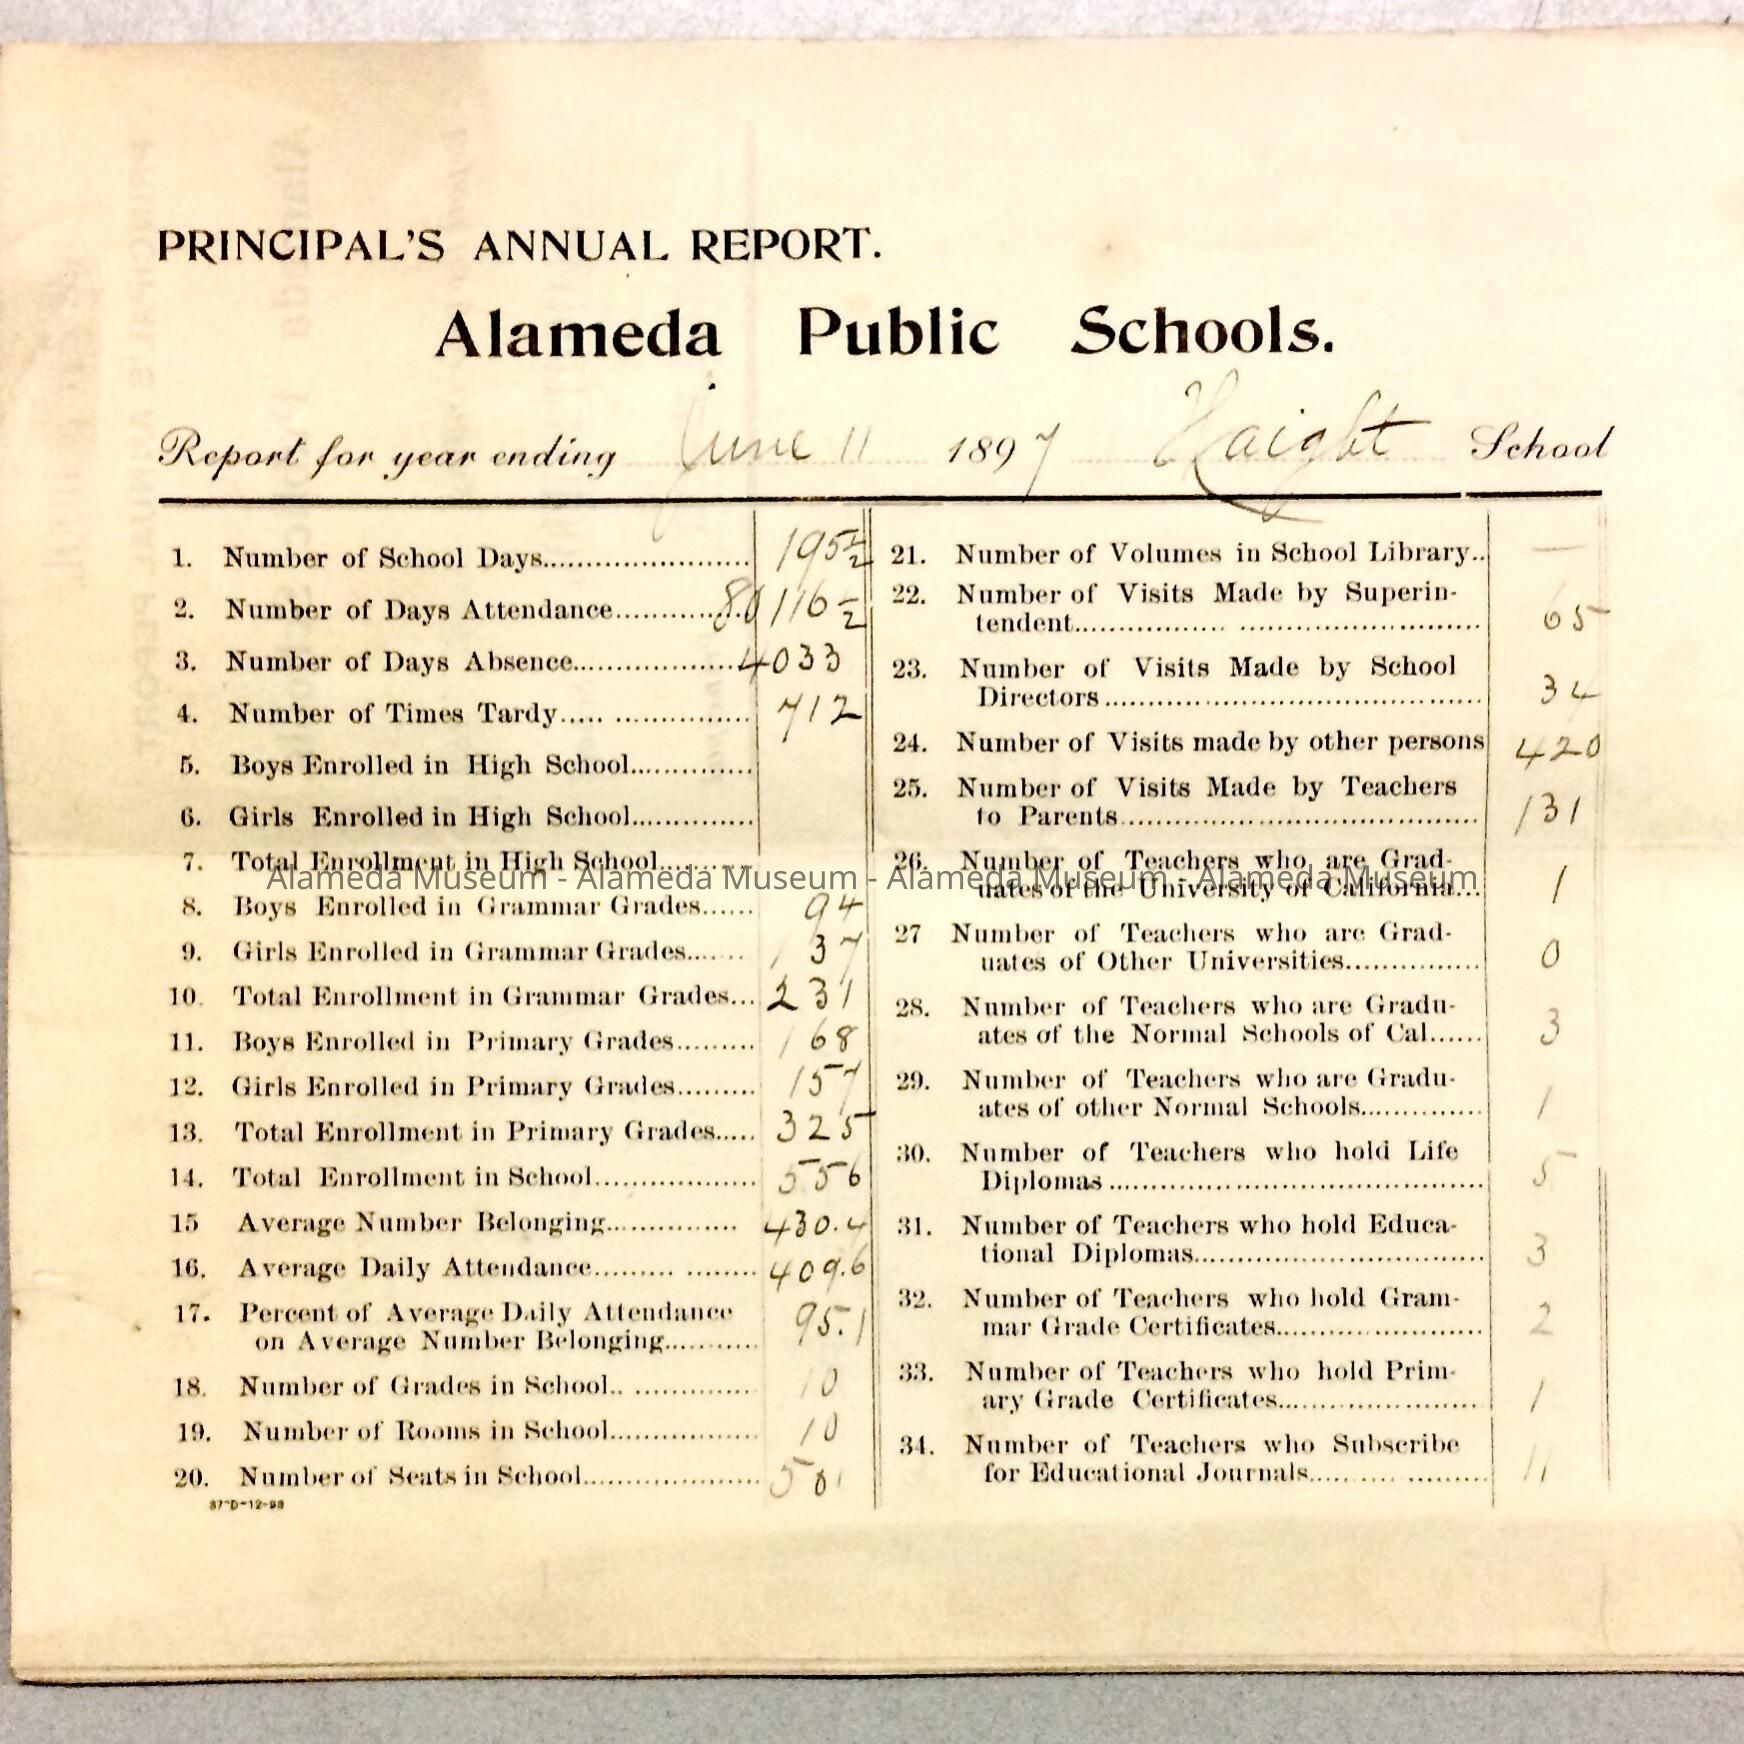 PRINCIPAL'S ANNUAL REPORT.
Alameda Public Schools.
Report for year ending June 11 1897 Haight School
1. Number of School Days........................ 195 1/2
2. Number of Days Attendance............... 80116 1/2
3. Number of Days Absence................... 4033
4. Number of Times Tardy..... ................ 712
5. Boys Enrolled in High School..............
6. Girls Enrolled in High School..............
7. Total Enrollment in High School...........
8. Boys Enrolled in Grammar Grades...... 94
9. Girls Enrolled in Grammar Grades....... 137
10. Total Enrollment in Grammar Grades... 231
11. Boys Enrolled in Primary Grades......... 168
12. Girls Enrolled in Primary Grades......... 157
13. Total Enrollment in Primary Grades..... 325
14. Total Enrollment in School................... 556
15 Average Number Belonging............... 430.4
16. Average Daily Attendance......... ........ 409.6
17. Percent of Average Daily Attendance
on Average Number Belonging........... 95.1
18. Number of Grades in School.. .............. 10
19. Number of Rooms in School................. 10
20. Number of Seats in School..................... 501
87-D-12-93
21. Number of Volumes in School Library.. —
22. Number of Visits Made by Superin-
tendent.................. ............................. 65
23. Number of Visits Made by School
Directors............................................. 34
24. Number of Visits made by other persons 420
25. Number of Visits Made by Teachers
to Parents.......................................... 131
26. Number of Teachers who are Grad-
uates of the University of California... 1
27 Number of Teachers who are Grad-
uates of Other Universities................ 0
28. Number of Teachers who are Gradu-
ates of the Normal Schools of Cal...... 3
29. Number of Teachers who are Gradu-
ates of other Normal Schools.............. 1
30. Number of Teachers who hold Life
Diplomas............................................. 5
31. Number of Teachers who hold Educa-
tional Diplomas.................................. 3
32. Number of Teachers who hold Gram-
mar Grade Certificates........................ 2
33. Number of Teachers who hold Prim-
ary Grade Certificates........................ 1
34. Number of Teachers who Subscribe
for Educational Journals.................... 11
Alameda Museum - Alameda Museum - Alameda Museum - Alameda Museum